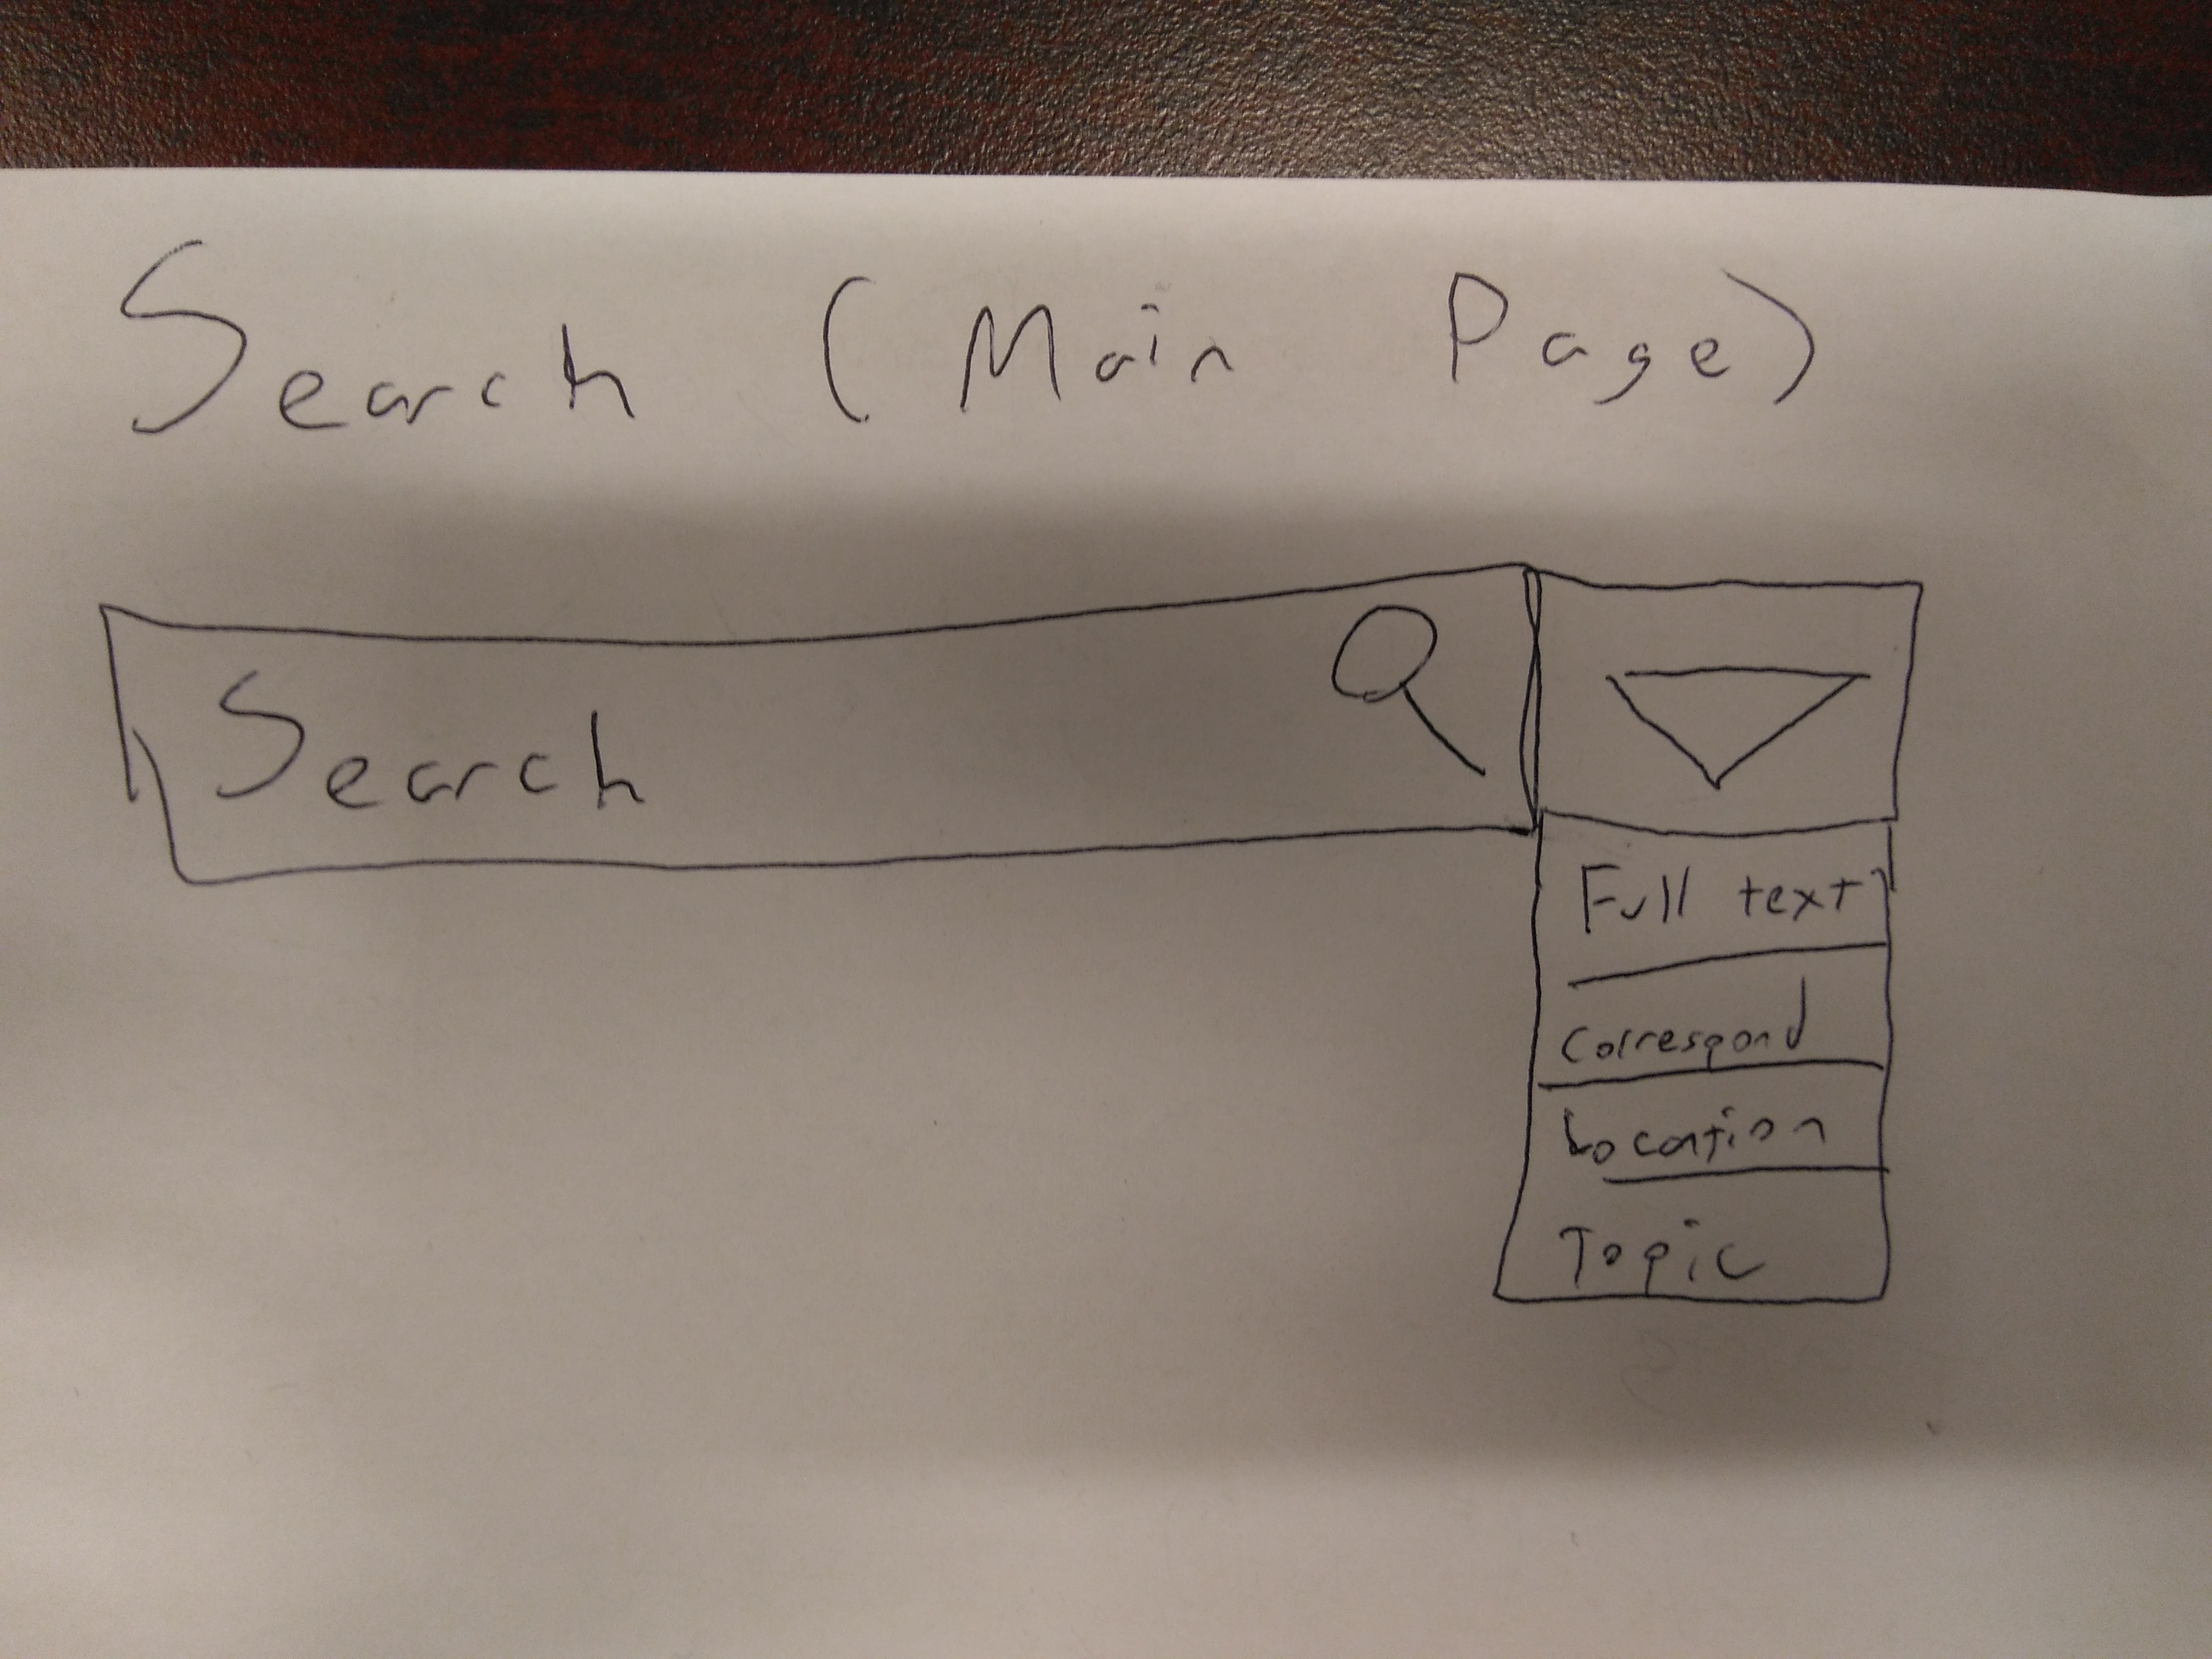 Search (Main Page)
Search
Full text
Correspond
Location
Topic